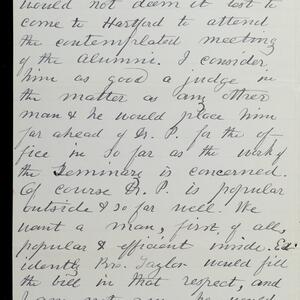 would not deem it best to
come to Hartford to attend
the contemplated meeting
of the Alumni. I consider
him as good a judge in
the matter as any other
man & he would place him
far ahead of Dr. P. for the of-
fice in so far as the work of
the Seminary is concerned.
Of course Dr. P. is popular
outside & so far well. We
want a man, first, of all,
popular & efficient inside. Ev-
idently Bro. Taylor would fill
the bill in that respect, and
I am not